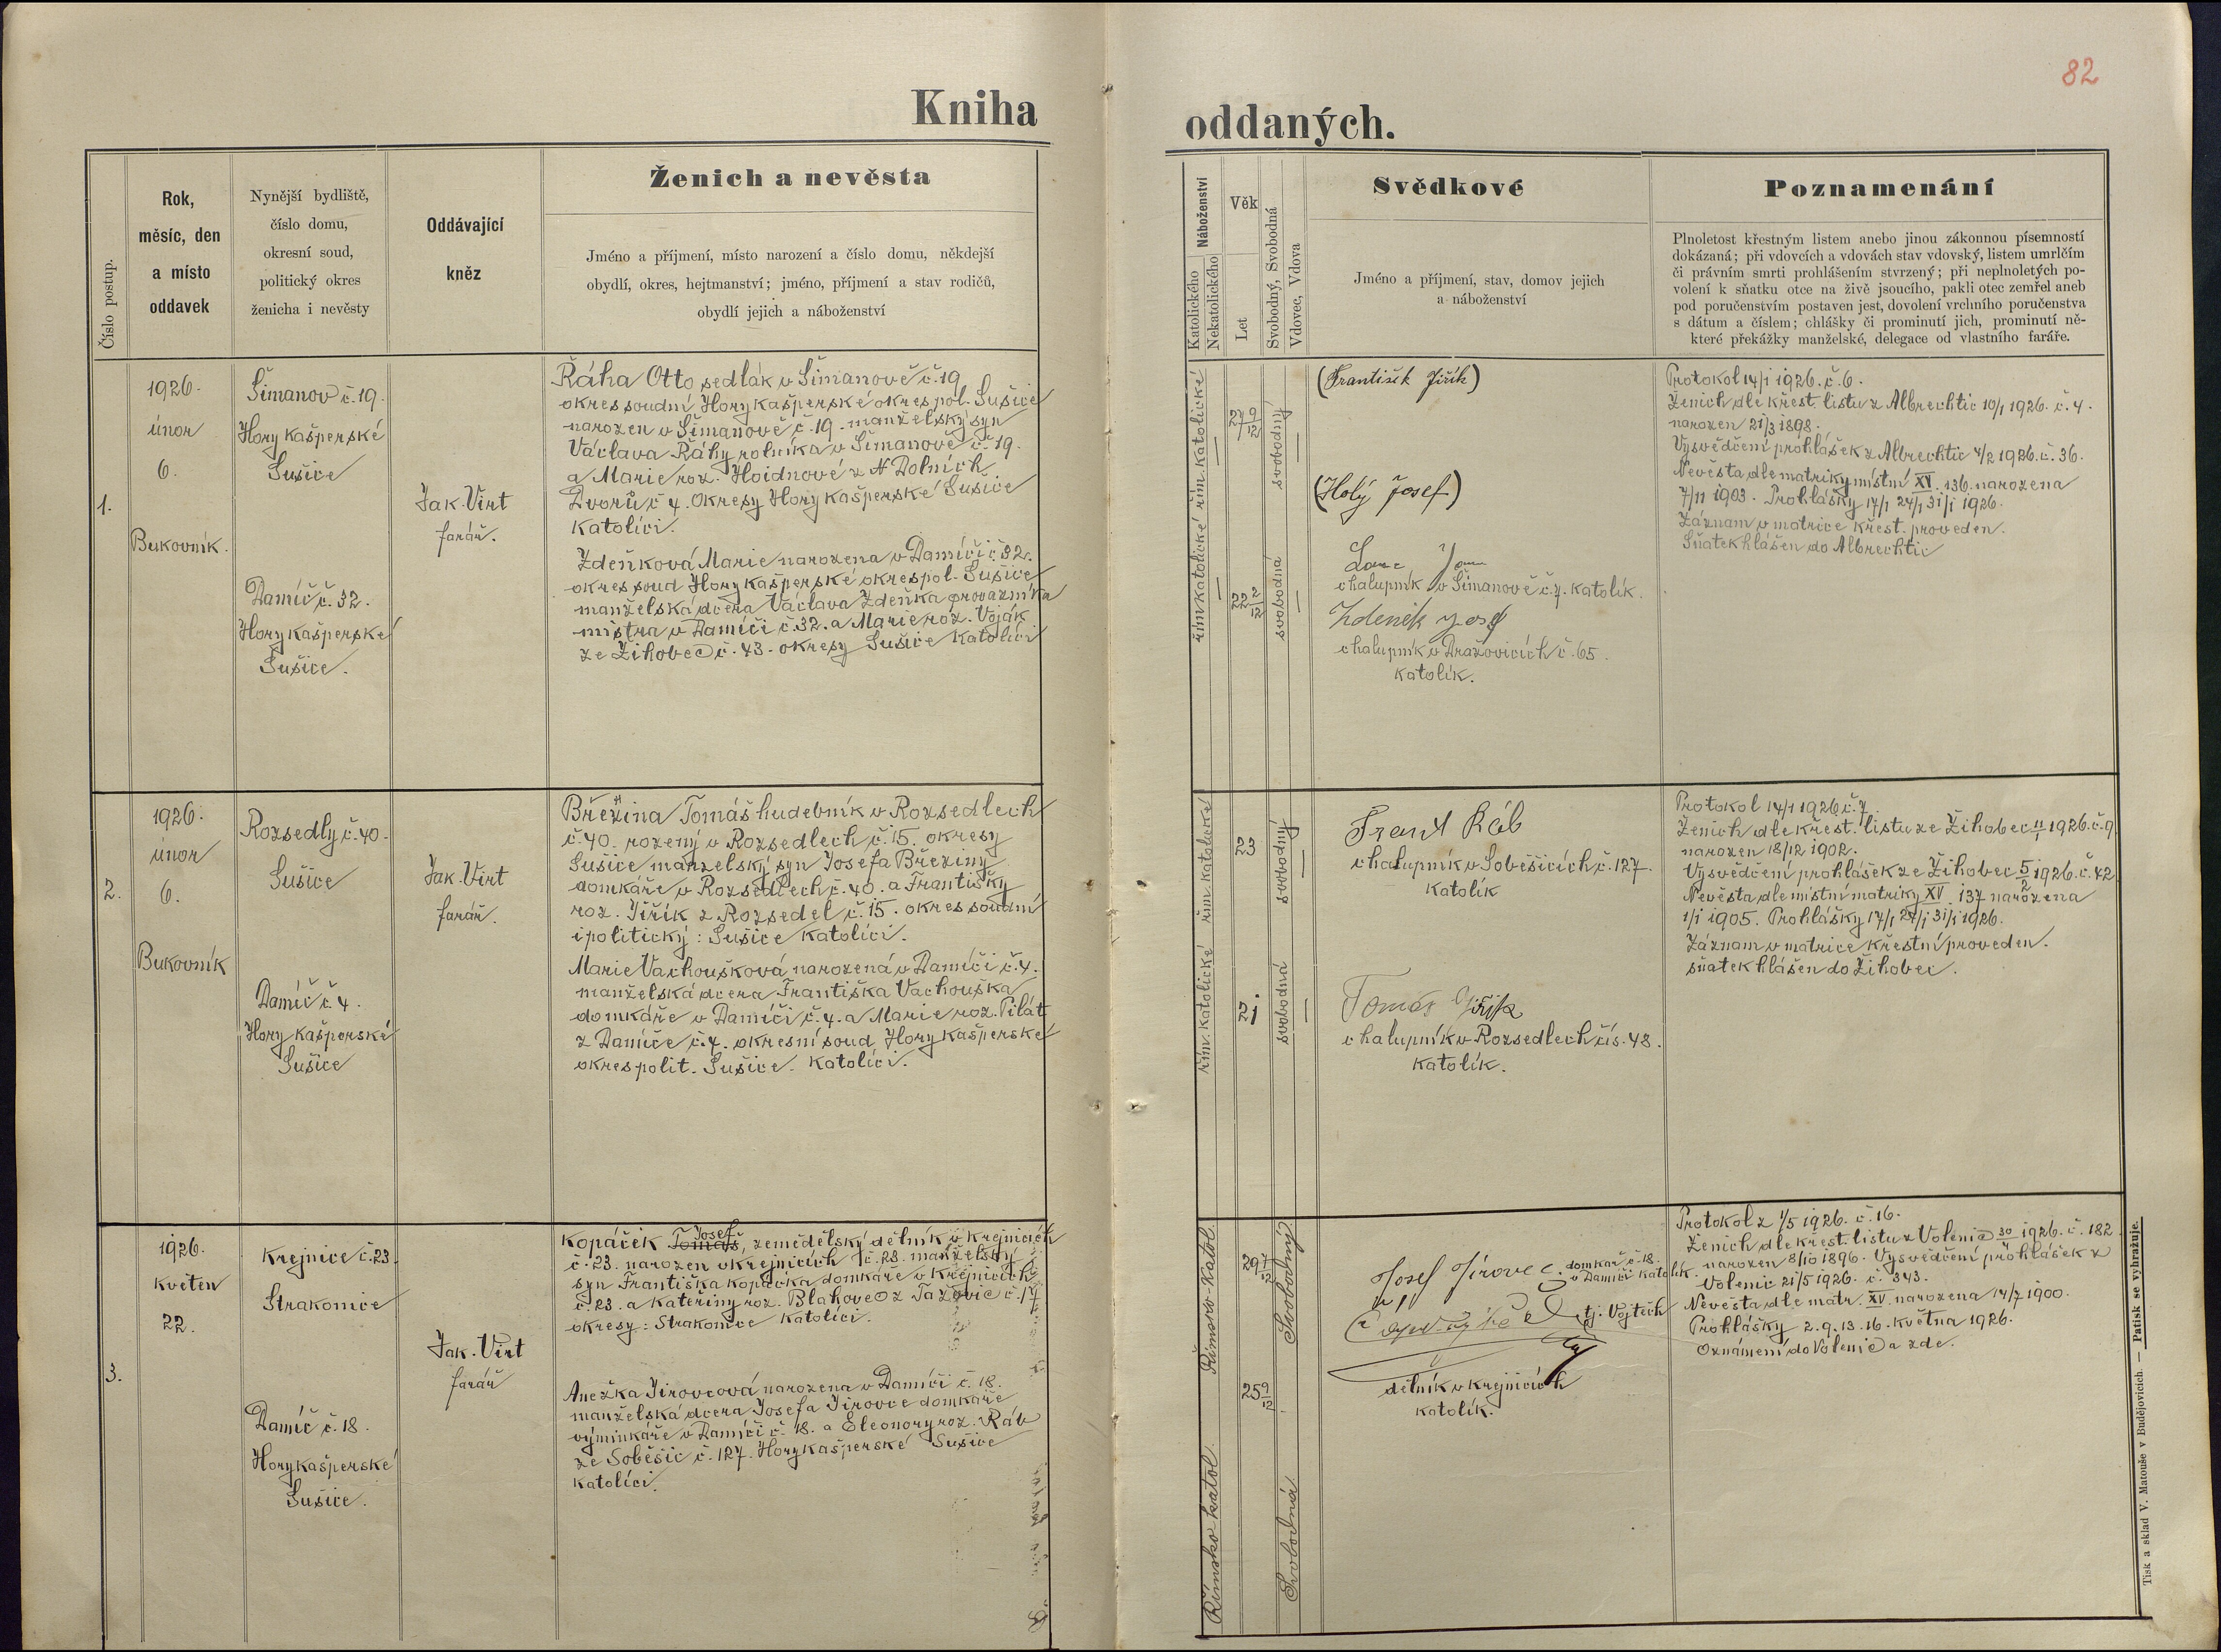 82
Kniha oddaných.
Číslo postup.
Rok,
měsíc, den
a místo
oddavek
Nynější bydliště,
číslo domu,
okresní soud,
politický okres
ženicha i nevěsty
Oddávající
kněz
Ženich a nevěsta
Jméno a příjmení, místo narození a číslo domu, někdejší
obydlí, okres, hejtmanství; jméno, příjmení a stav rodičů,
obydlí jejich a náboženství
Náboženství
Katolického
Nekatolického
Věk
Let
Svobodný, Svobodná
Vdovec, Vdova
Svědkové
Jméno a příjmení, stav, domov jejich
a náboženství
Poznamenání
Plnoletost křestným listem anebo jinou zákonnou písemností
dokázaná; při vdovcích a vdovách stav vdovský, listem umrlčím
či právním smrti prohlášením stvrzený; při neplnoletých po-
volení k sňatku otce na živě jsoucího, pakli otec zemřel aneb
pod poručenstvím postaven jest, dovolení vrchního poručenstva
s dátum a číslem; ohlášky či prominutí jich, prominutí ně-
které překážky manželské, delegace od vlastního faráře.
1.
1926.
únor
6.
Bukovník.
Šimanov č. 19.
Hory Kašperské
Sušice
Damíč č. 32.
Hory Kašperské
Sušice.
Jak. Virt
farář.
Řáha Otto sedlák v Šimanově č. 19
okres soudní Hory Kašperské okres pol. Sušice
narozen v Šimanově č. 19. manželský syn
Václava Řáhy rolníka v Šimanově č. 19.
a Marie roz. Hoidnové z N Dolních
Dvorů č 4. Okresy Hory Kašperské Sušice
Katolíci.
Zdeňková Marie narozena v Damíči č 32.
okres soud Hory Kašperské okres pol. Sušice
manželská dcera Václava Zdeňka provazníka
mistra v Damíči č. 32. a Marie roz. Voják
ze Žihobec č. 43. okresy Sušice Katolíci
řím katolické řím. katolické
27 9/12
22 2/12
svobodný
svobodná
(František Jiřík)
(Holý Josef)
chalupník v Šimanově č. 7. Katolík.
Zdeněk Josef
chalupník v Dražovicích č. 65.
Katolík.
Protokol 14/1 1926. č. 6.
Ženich dle křest. listu z Albrechtic 10/1 1926. č. 4.
narozen 21/3 1898.
Vysvědčení prohlášek z Albrechtic 4/2 1926. č. 36.
Nevěsta dle matriky místní XV. 136. narozena
7/11 1903. Prohlášky 17/1 24/1 31/1 1926.
Záznam v matrice křest. proveden.
Sňatek hlášen do Albrechtic
2.
1926.
únor
6.
Bukovník
Rozsedly č. 40.
Sušice
Damíč č 4.
Hory Kašperské
Sušice
Jak. Virt
farář.
Březina Tomáš hudebník v Rozsedlech
č. 40. rozený v Rozsedlech č. 15. okresy
Sušice manželský syn Josefa Březiny
domkáře v Rozsedlech č. 40. a Františky
roz. Jiřík z Rozsedel č. 15. okres soudní
i politický: Sušice Katolíci.
Marie Vachoušková narozená v Damíči č. 4.
manželská dcera Františka Vachouška
domkáře v Damíči č. 4. a Marie roz. Pilát
z Damíče č. 4. okresní soud Hory Kašperské
okres polit. Sušice. Katolíci.
řím. katolické řím. katolické
23
21
svobodný
svobodná
Frant Ráb
chalupník v Soběšicích č. 127.
Katolík
Tomáš Jiřík
chalupník v Rozsedlech čís. 48.
Katolík.
Protokol 14/1 1926 č. 7.
Ženich dle křest. listu ze Žihobec 11/1 1926. č. 9
narozen 18/12 1902.
Vysvědčení prohlášek ze Žihobec 5/2 1926. č. 42
Nevěsta dle místní matriky XV. 137 narozena
1/1 1905. Prohlášky 17/1 24/1 31/1 1926.
Záznam v matrice křestní proveden.
sňatek hlášen do Žihobec.
3.
1926.
květen
22.
Krejnice č. 23.
Strakonice
Damíč č. 18.
Hory Kašperské
Sušice.
Jak. Virt
farář
Josef
Kopáček Tomáš, zemědělský dělník v Krejnicích
č. 23. narozen v Krejnicích č. 23. manželský
syn Františka Kopáčka domkáře v Krejnicích
č. 23. a Kateřiny roz. Blahovec z Tažovic č. 17
okresy: Strakonice Katolíci.
Anežka Jirovcová narozena v Damíči č. 18.
manželská dcera Josefa Jirovce domkáře
výminkáře v Damíči č. 18. a Eleonory roz. Ráb
ze Soběšic č. 127. Hory Kašperské Sušice
Katolíci.
Římsko-Katol.
Římsko katol.
29 7/12
25 9/12
Svobodný
Svobodná
Josef Jirovec. domkář č. 18.
v Damíči Katolík.
tj. Vojtěch
dělník v Krejnicích
Katolík.
Protokol z 1/5 1926. č. 16.
Ženich dle křest. listu z Volenic 30/ 1926. č. 182
narozen 8/10 1896. Vysvědčení prohlášek z
Volenic 21/5 1926. č. 343.
Nevěsta dle matr. XV. narozena 14/7 1900.
Prohlášky 2. 9. 13. 16. května 1926.
Oznámení do Volenic a zde.
Tisk a sklad V. Matouše v Budějovicích. — Patisk se vyhražuje.